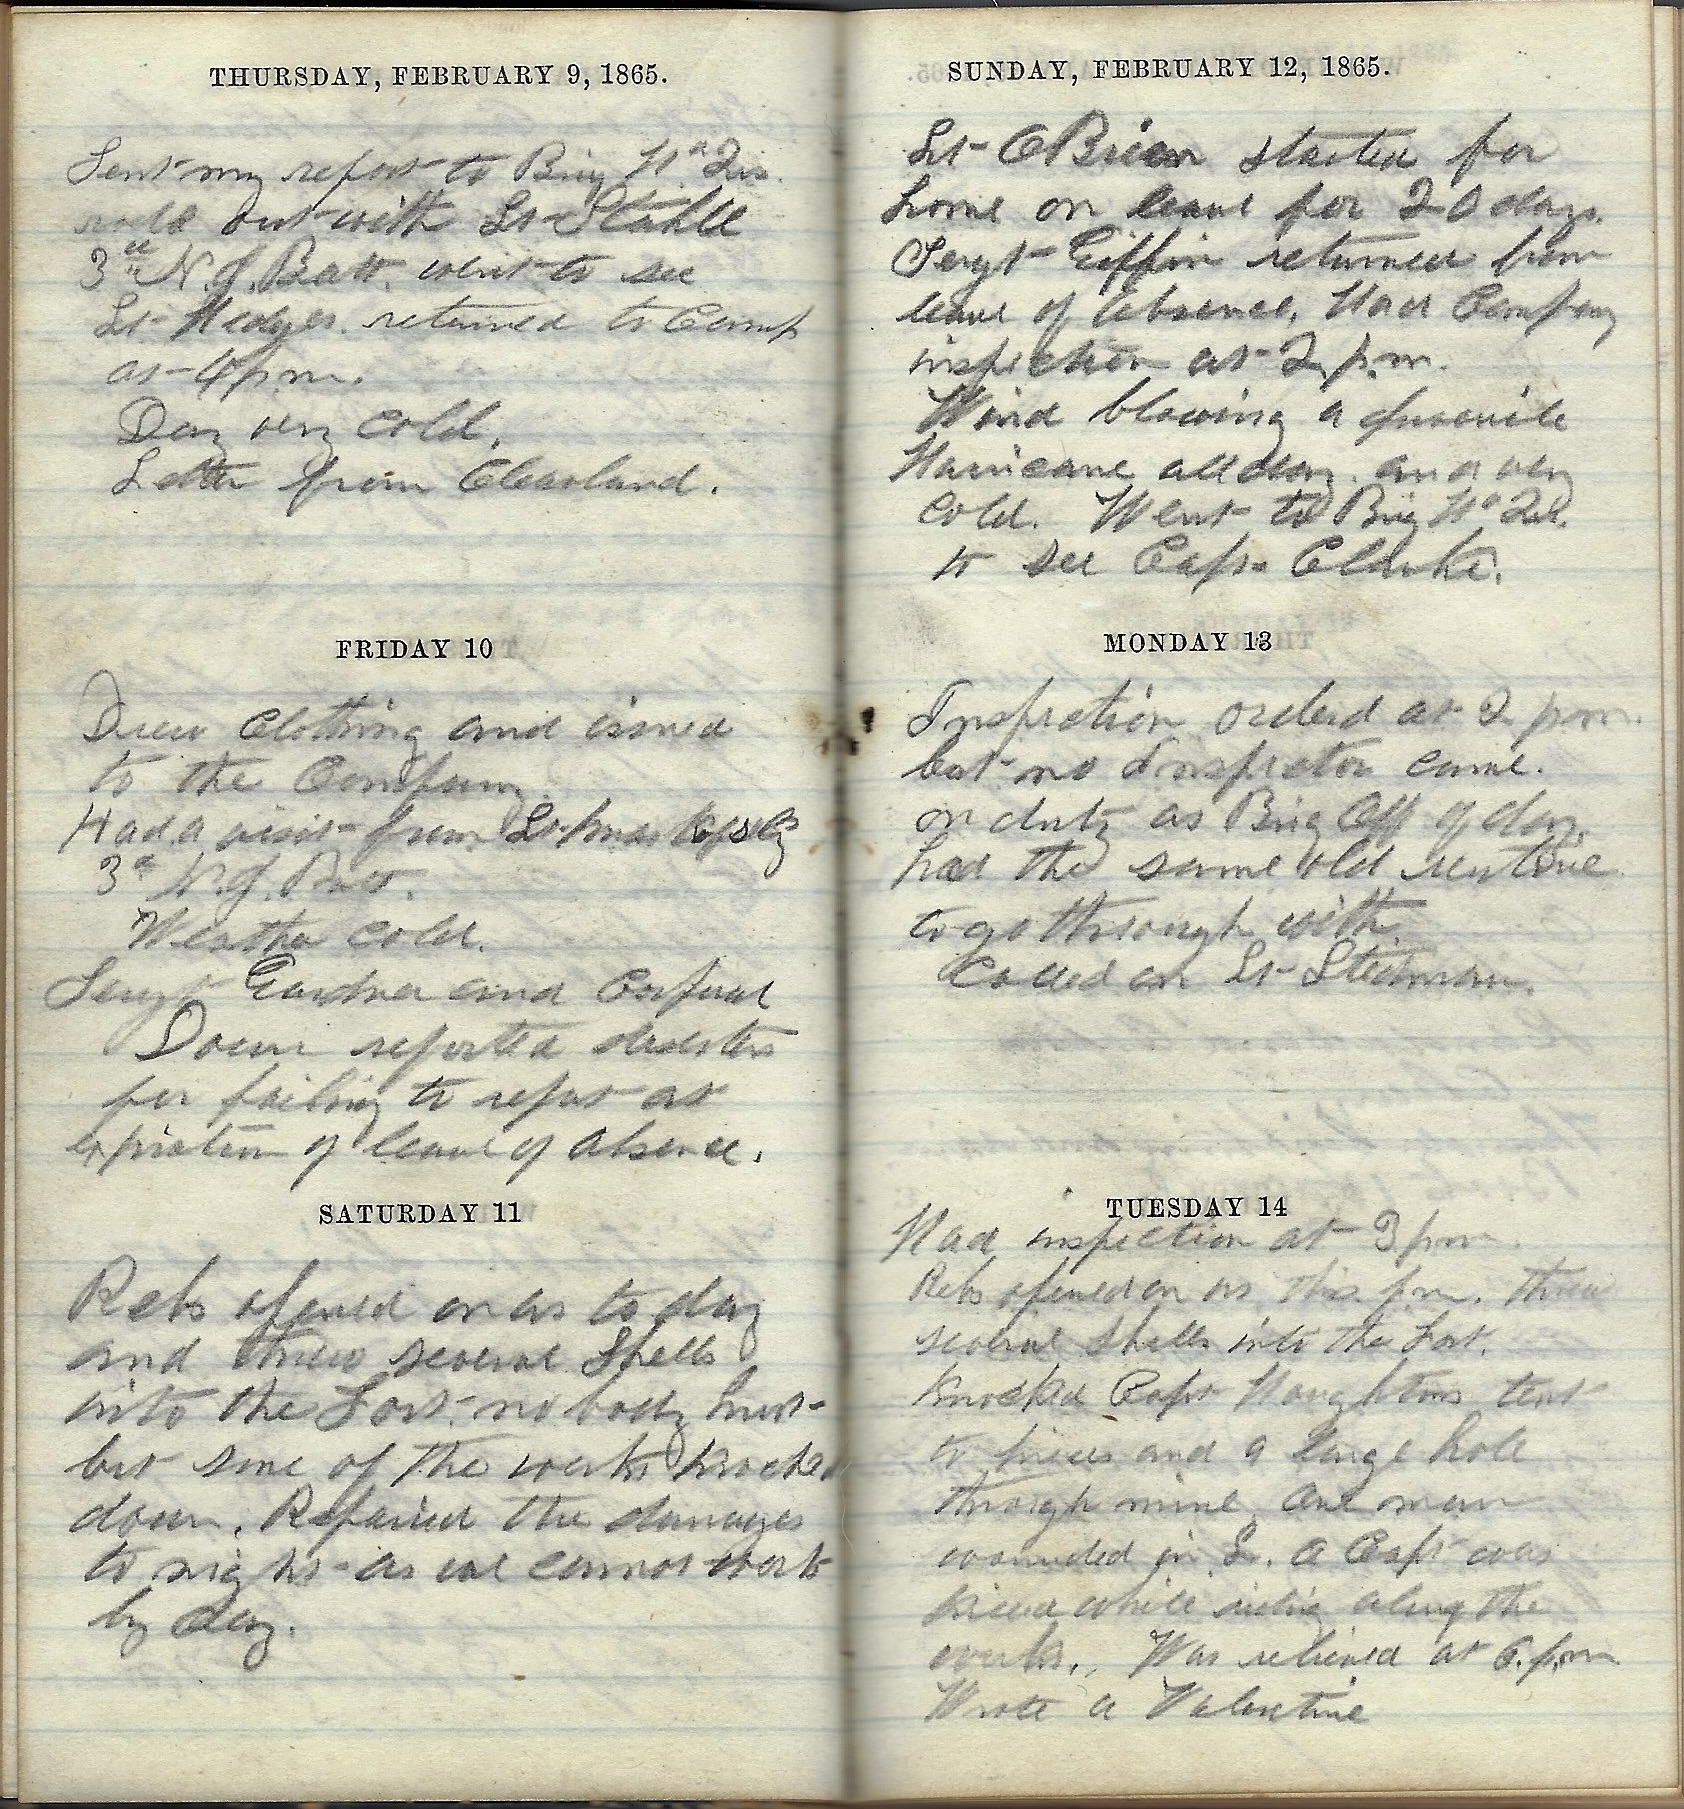 THURSDAY, FEBRUARY 9, 1865.
Sent my report to Brig Hd Qrs.
rode out with Lt Stahle
3rd N.J. Batt. went to see
Lt Hedges. returned to Camp
at 4 p m.
Day very cold.
Letter from Cleaveland.
FRIDAY 10
Drew Clothing and issued
to the Company.
Had a visit from Lt
3d N.J. Batt.
Weather cold.
Sergt Gardner and Corporal
reported deserters
for failing to report at
expiration of leave of absence.
SATURDAY 11
Rebs opened on us to day
and threw several Shells
into the Fort. nobody hurt
but some of the works knocked
down. Repaired the damages
to night as we cannot work
by day.
SUNDAY, FEBRUARY 12, 1865.
Lt OBrien started for
home on leave for 20 days.
Sergt Giffin returned from
leave of absence, Had Company
inspection at 2 p.m.
Wind blowing a juvenile
Hurricane all day. and very
cold. Went to Brig Hd Qrs.
to see Capt Clarke.
MONDAY 13
Inspection orderd at 2 p m.
but no Inspector came.
on duty as Brig Off of day.
had the same old routine
to go through with
Called on Lt Stedman.
TUESDAY 14
Had inspection at 3 p m.
Rebs opened on us this p.m. threw
several shells into the Fort.
Knocked Capt Houghtons tent
to pieces and a large hole
through mine One man
wounded in L. a Capt was
killed while riding along the
works. Was relieved at 6. p.m
Wrote a Valentine